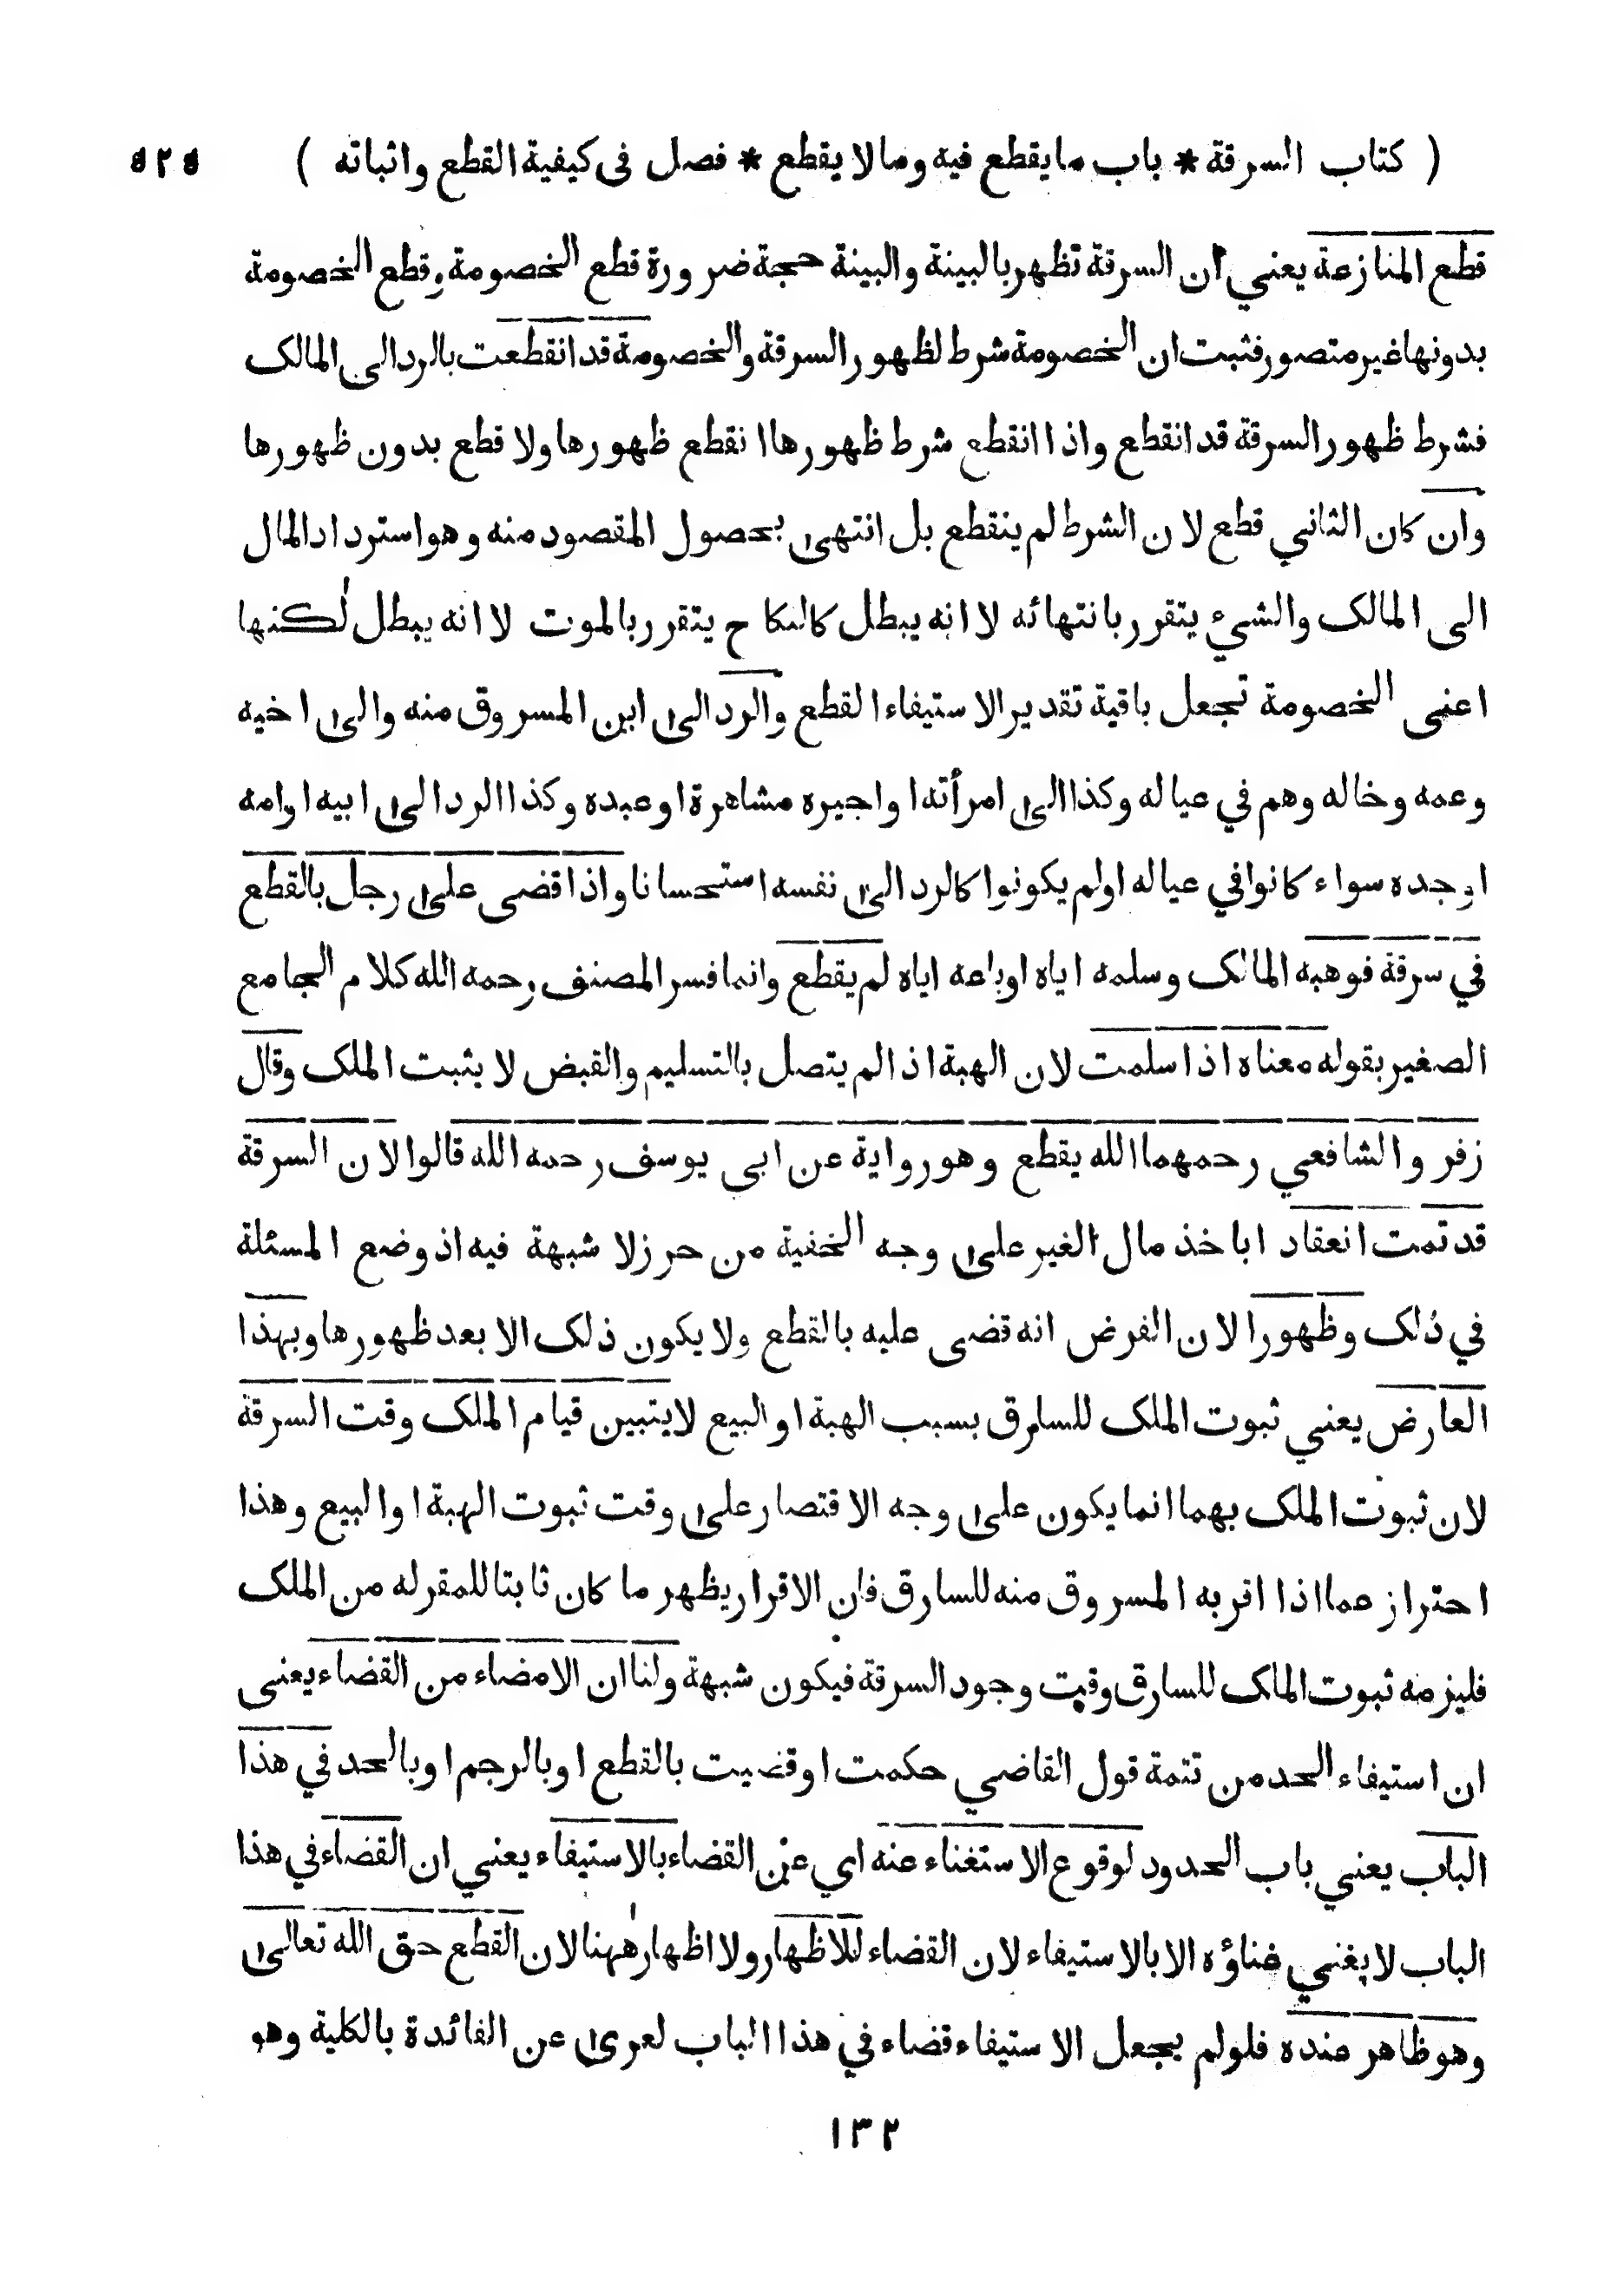 ( كتاب السرقة * باب ما يقطع فيه وما لا يقطع * فصل فى كيفية القطع واثباته ) ٥٢٥
قطع المنازعة يعني ان السرقة تظهر بالبينة والبينة حجة ضرورة قطع الخصومة وقطع الخصومة
بدونها غير متصور فثبت ان الخصومة شرط لظهور السرقة والخصومة قد انقطعت بالرد الى المالك
فشرط ظهور السرقة قد انقطع واذا انقطع شرط ظهورها انقطع ظهورها ولا قطع بدون ظهورها
وان كان الثاني قطع لان الشرط لم ينقطع بل انتهى بحصول المقصود منه وهو استرداد المال
الى المالك والشيء يتقرر بانتهائه لا انه يبطل كالنكاح يتقرر بالموت لا انه يبطل لٰكنها
اعنى الخصومة تجعل باقية تقدير الاستيفاء القطع والرد الى ابن المسروق منه والى اخيه
وعمه وخاله وهم في عياله وكذا الى امرأته او اجيره مشاهرة او عبده وكذا الرد الى ابيه او امه
او جده سواء كانوا في عياله او لم يكونوا كالرد الى نفسه استحسانا واذا قضى على رجل بالقطع
في سرقة فوهبه المالك وسلمه اياه او باعه اياه لم يقطع وانما فسر المصنف رحمه الله كلام الجامع
الصغير بقوله معناه اذا سلمت لان الهبة اذا لم يتصل بالتسليم والقبض لا يثبت الملك وقال
زفر والشافعي رحمهما الله يقطع وهو رواية عن ابى يوسف رحمه الله قالوا لان السرقة
قد تمت انعقادا باخذ مال الغير على وجه الخفية من حرز لا شبهة فيه اذ وضع المسئلة
في ذٰلك وظهورا لان الفرض انه قضى عليه بالقطع ولا يكون ذلك الا بعد ظهورها وبهذا
العارض يعني ثبوت الملك للسارق بسبب الهبة او البيع لا يتبين قيام الملك وقت السرقة
لان ثبوت الملك بهما انما يكون على وجه الاقتصار على وقت ثبوت الهبة او البيع وهذا
احتراز عما اذا اقر به المسروق منه للسارق فان الاقرار يظهر ما كان ثابتا للمقر له من الملك
فليزمه ثبوت الملك للسارق وقت وجود السرقة فيكون شبهة ولنا ان الامضاء من القضاء يعنى
ان استيفاء الحد من تتمة قول القاضي حكمت او قضيت بالقطع او بالرجم او بالحد في هذا
الباب يعني باب الحدود لوقوع الاستغناء عنه اي عن القضاء بالاستيفاء يعني ان القضاء في هذا
الباب لا يغني غناؤه الا بالاستيفاء لان القضاء للاظهار ولا اظهار هٰهنا لان القطع حق الله تعالى
وهو ظاهر عنده فلو لم يجعل الاستيفاء قضاء في هذا الباب لعرى عن الفائدة بالكلية وهو
١٣٢